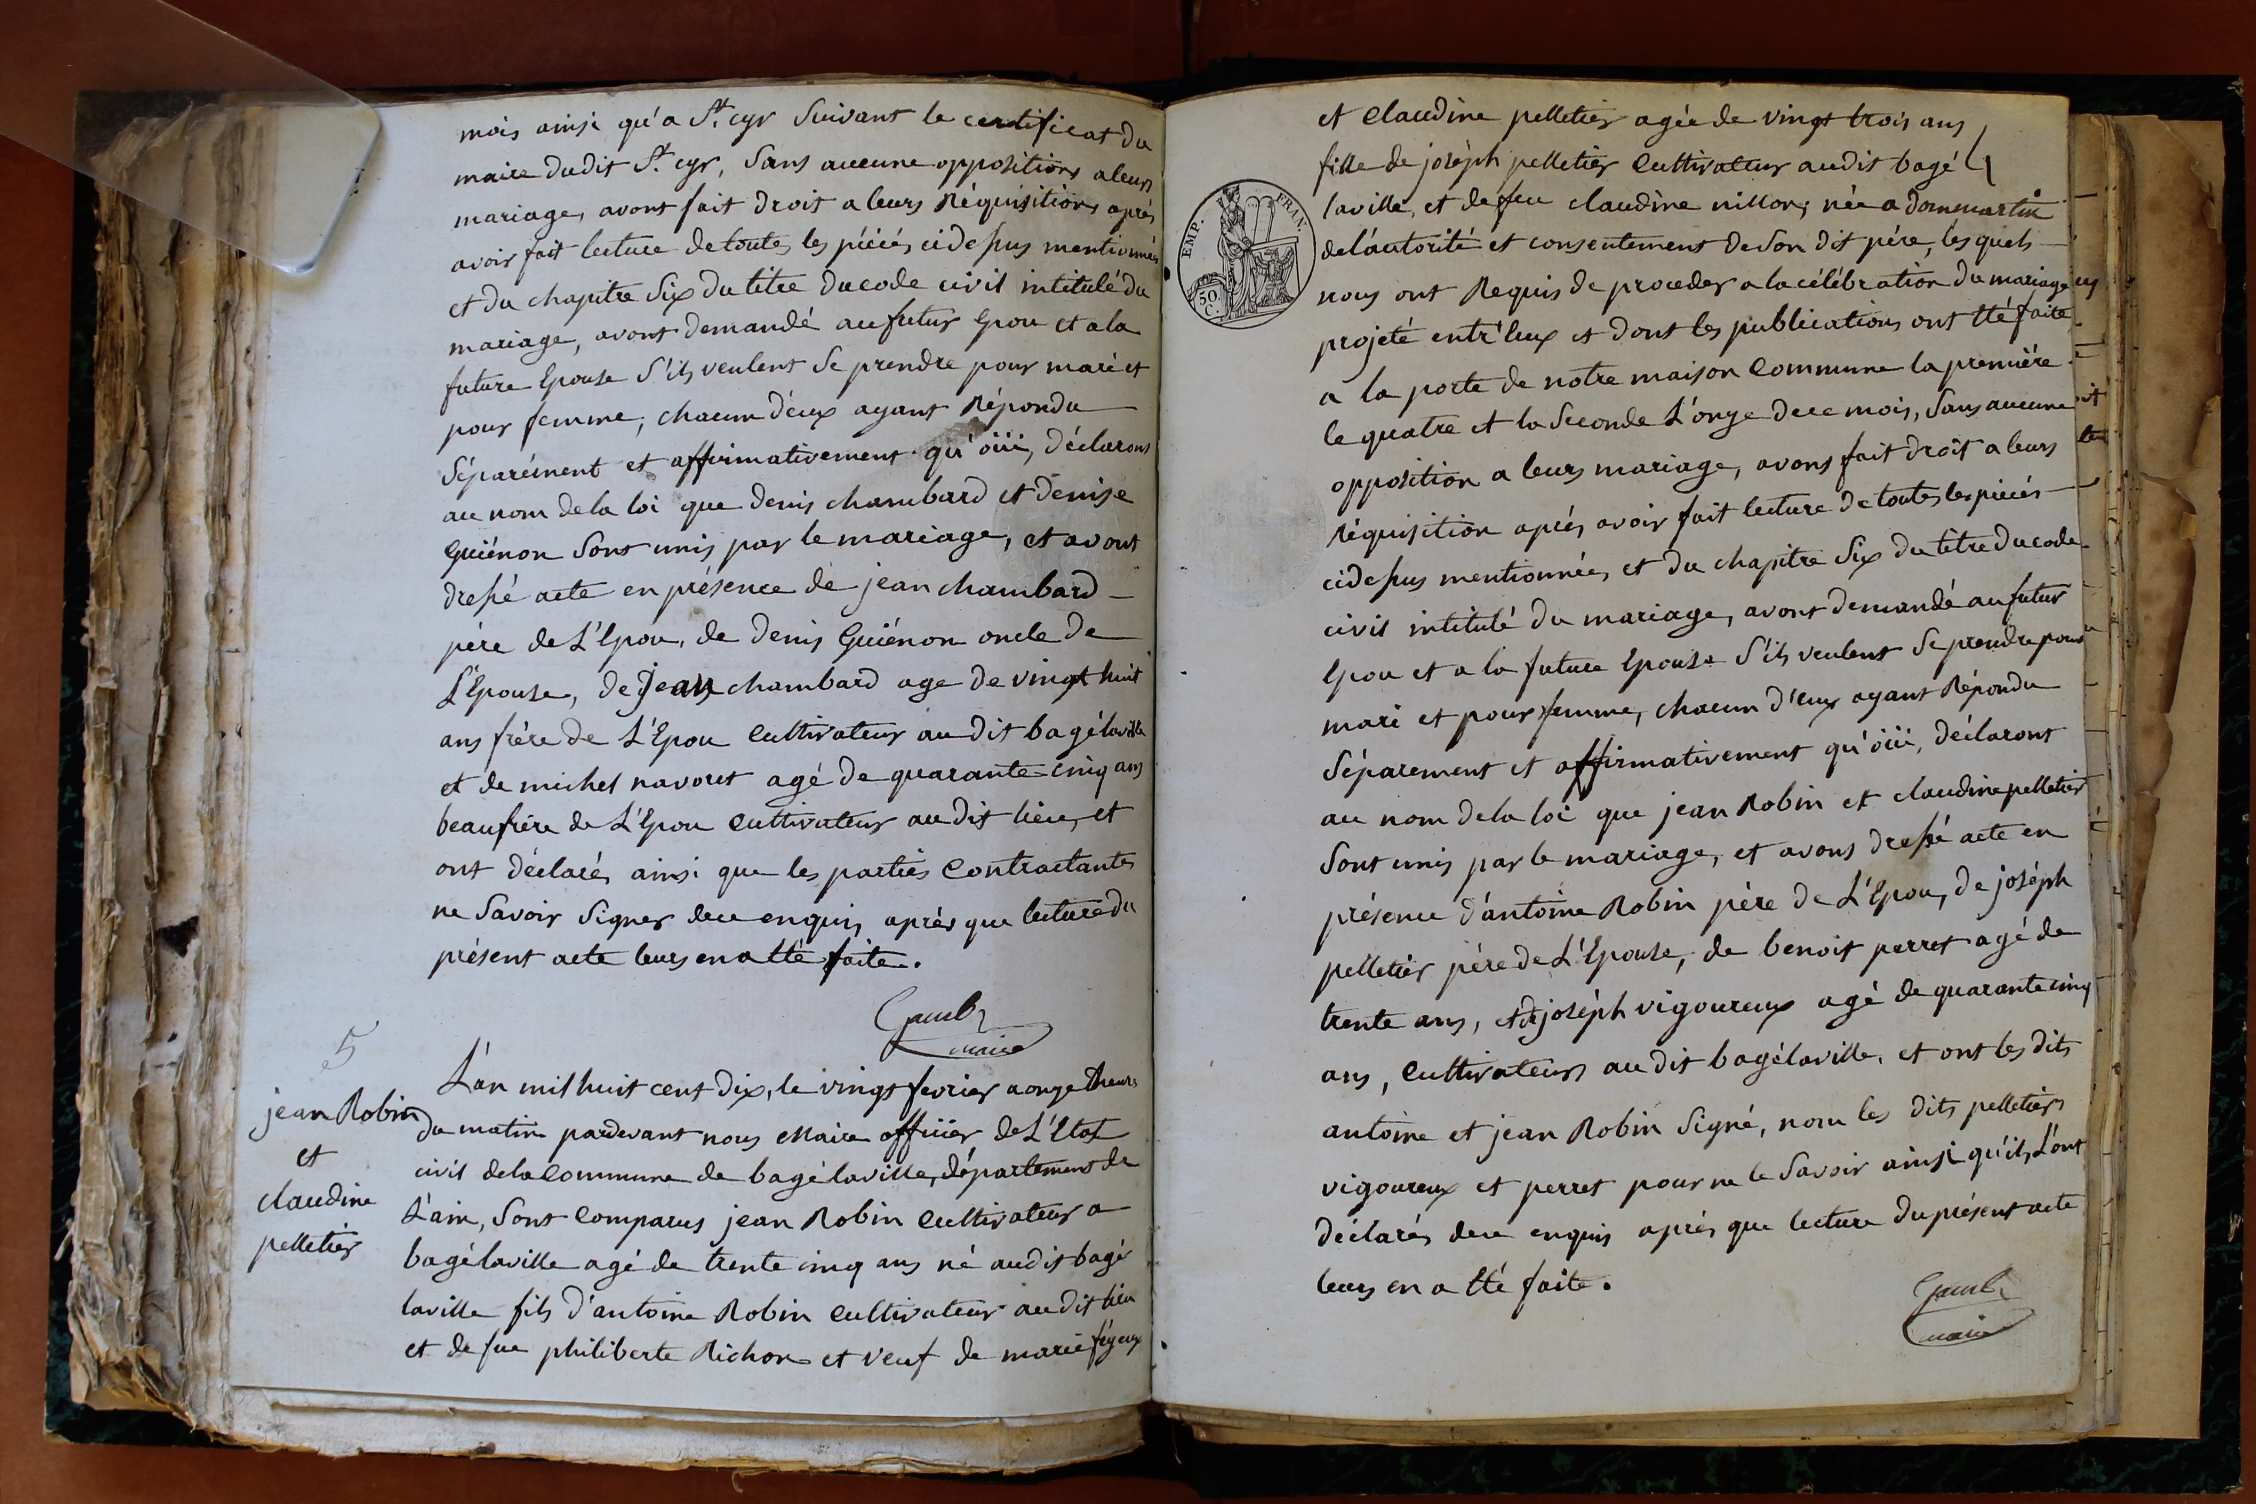 mois ainsi qu'a St. cyr Suivant le certificat du
maire dudit St. cyr, Sans aucune oppositions a leurs
mariage, avont fait droit a leurs Réquisitions après
avoir fait lecture de toutes les piéces cidessus mentionnées
et du chapitre Six du titre du code civil intitulé du
mariage, avont demandé au futur Epou et a la
future Epouse S'ils veulent Se prendre pour mari et
pour femme, chacun d'eux ayant Répondu
Séparément et affirmativement qu'öüi, déclarons
au nom de la loi que denis chambard et denise
Guiénon Sont unis par le mariage, et avont
dressé acte en présence de jean chambard
pére de L'Epou, de denis Guiénon oncle de
L'Epouse, de jean chambard age de vingt huit
ans frère de L'Epou Cultivateur au dit bagélaville
et de michel navoret agé de quarante cinq ans
beaufrère de L'Epou Cultivateur au dit lieu, et
ont déclarés ainsi que les parties Contractantes
ne Savoir Signer dece enquis après que lecture du
présent acte leurs en a Eté faite.
maire
5
jean Robin
et
claudine
pelletier
L'an mil huit cent dix, le vingt fevrier a onze heures
du matin pardevant nous Maire officier de L'Etat
civil de la Commune de bagélaville, département de
L'ain, Sont Comparus jean Robin Cultivateur a
bagélaville agé de trente cinq ans né audit bagé
laville fils d'antoine Robin Cultivateur au dit lieu
et de fue philiberte Richon et veuf de marie féyeux
et Claudine pelletier agée de vingt trois ans
fille de joséph pelletier Cultivateur audit bagé
laville, et de feu claudine nillon, née a dommartin
EMP. FRAN.
50 C.
de l'autorité et consentement de Son dit pére, lesquels
nous ont Requis de proceder a la célébration du mariage
projeté entr'Eux et dont les publications ont Eté faite
a la porte de notre maison Commune la première
le quatre et la Seconde L'onze dece mois, Sans aucune
opposition a leurs mariage, avons fait droit a leurs
réquisition aprés avoir fait lecture de toutes les piecés
cidessus mentionnées et du chapitre Six du titre du code
civil intitulé du mariage, avont demandé au futur
Epou et a la future Epouse S'ils veulent Se prendre pour
mari et pour femme, chacun d'eux ayant Répondu
Séparement et affirmativement qu'öüi, déclaront
au nom de la loi que jean Robin et claudine pelletier
Sont unis par le mariage, et avons dressé acte en
présence d'antoine Robin père de L'Epou, de joséph
pelletier père de L'Epouse, de benoit perret agé de
trente ans, et de joséph vigoureux agé de quarante cinq
ans, Cultivateurs au dit bagélaville, et ont les dits
antoine et jean Robin Signé, nom les dits pelletiers
vigoureux et perret pour ne le Savoir ainsi qu'ils L'ont
déclarés dece enquis après que lecture du présent acte
leurs en a Eté faite.
maire